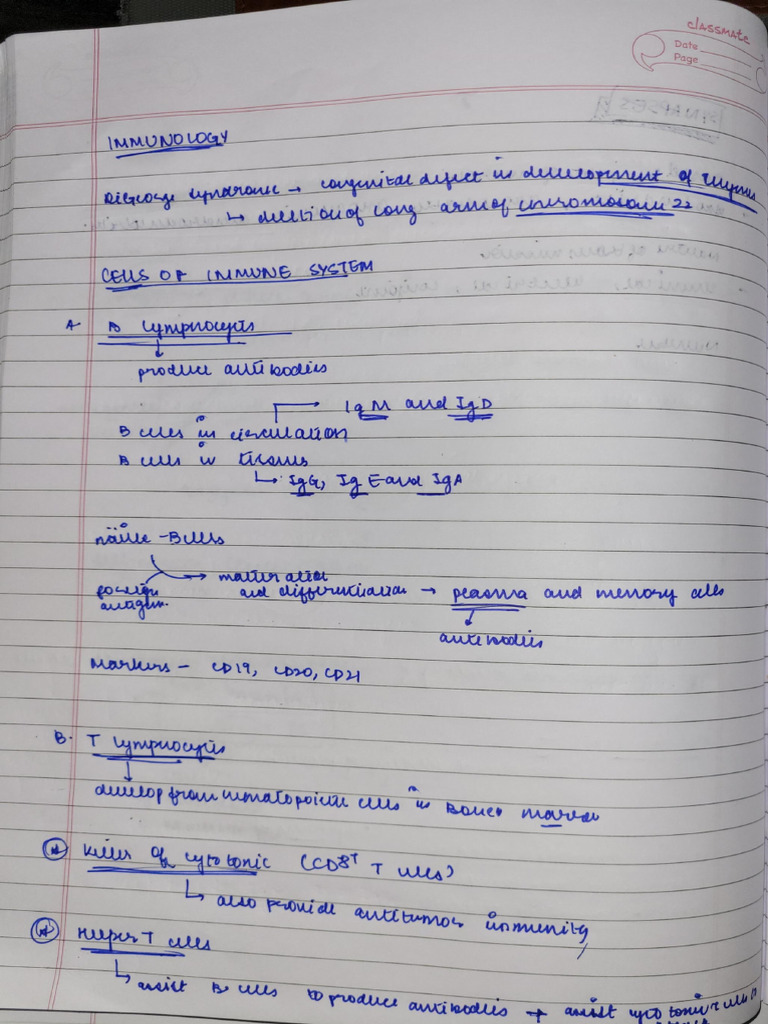 classmate
Date
Page
IMMUNOLOGY
DiGeorge syndrome → congenital defect in development of thymus
↳ deletion of long arm of chromosome 22
CELLS OF IMMUNE SYSTEM
A B lymphocytes
↓
produce antibodies
→ IgM and IgD
B cells in circulation
B cells in tissues
↳ IgG, IgE and IgA
naïve - B cells
foreign antigen → maturation and differentiation → plasma and memory cells
↓
antibodies
Markers - CD19, CD20, CD21
B. T lymphocytes
↓
develop from hematopoietic cells in Bone marrow
Killer of cytotoxic (CD8+ T cells)
↳ also provide antitumor immunity
Helper T cells
↳ assist B cells to produce antibodies + assist cytotoxic T cells